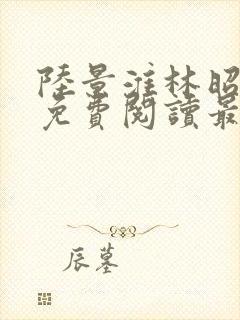 陸景淮林昭
免費閱讀最
辰墓